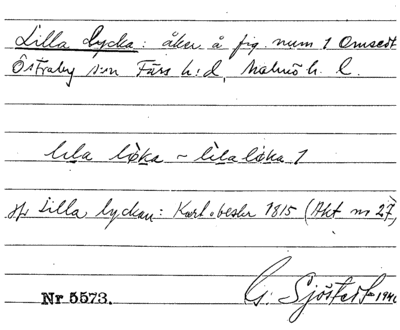 Lilla Lycka: åker å fig. num 1 Onsedt
Östraby s:n Färs h:d, Malmöh. l.
lila løka ~ lila løka 1
Jfr Lilla lyckan: Kart. o beskr 1815 (Akt nr 27)
Nr 5573. G: Sjöstedt 1940